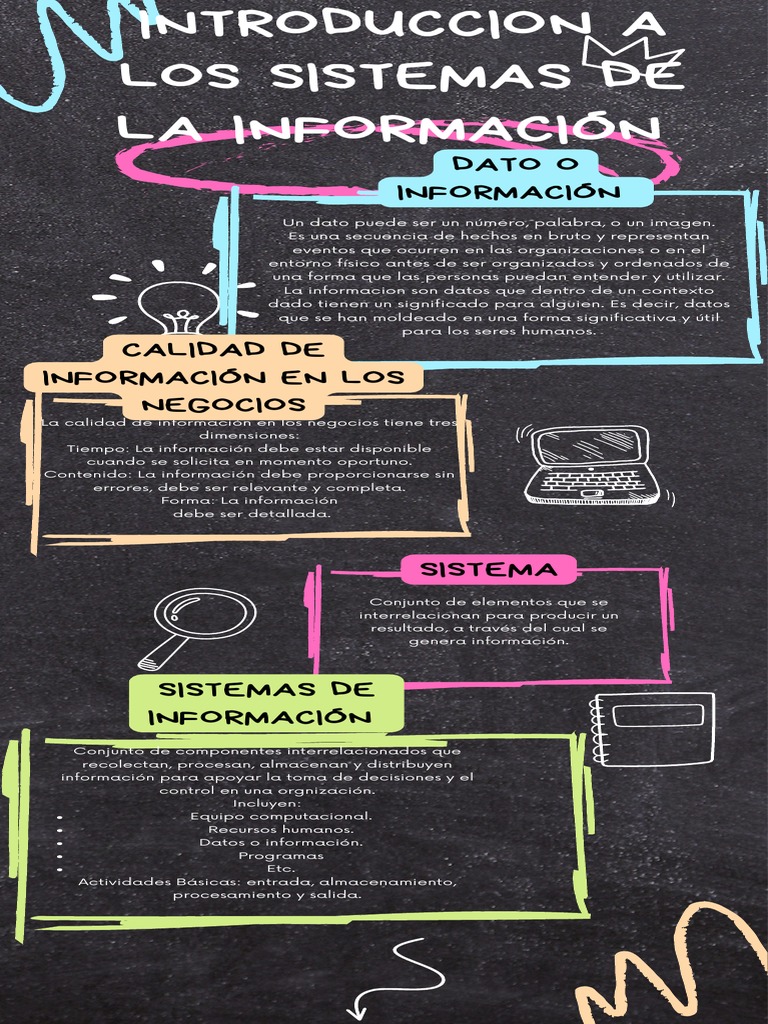 INTRODUCCION A
LOS SISTEMAS DE
LA INFORMACIÓN
DATO O
INFORMACIÓN
Un dato puede ser un número, palabra, o un imagen.
Es una secuencia de hechos en bruto y representan
eventos que ocurren en las organizaciones o en el
entorno físico antes de ser organizados y ordenados de
una forma que las personas puedan entender y utilizar.
La informacion son datos que dentro de un contexto
dado tienen un significado para alguien. Es decir, datos
que se han moldeado en una forma significativa y útil
para los seres humanos.
CALIDAD DE
INFORMACIÓN EN LOS
NEGOCIOS
La calidad de información en los negocios tiene tres
dimensiones:
Tiempo: La información debe estar disponible
cuando se solicita en momento oportuno.
Contenido: La información debe proporcionarse sin
errores, debe ser relevante y completa.
Forma: La información
debe ser detallada.
SISTEMA
Conjunto de elementos que se
interrelacionan para producir un
resultado, a través del cual se
genera información.
SISTEMAS DE
INFORMACIÓN
Conjunto de componentes interrelacionados que
recolectan, procesan, almacenan y distribuyen
información para apoyar la toma de decisiones y el
control en una orgnización.
Incluyen:
• Equipo computacional.
• Recursos humanos.
• Datos o información.
• Programas
• Etc.
Actividades Básicas: entrada, almacenamiento,
procesamiento y salida.